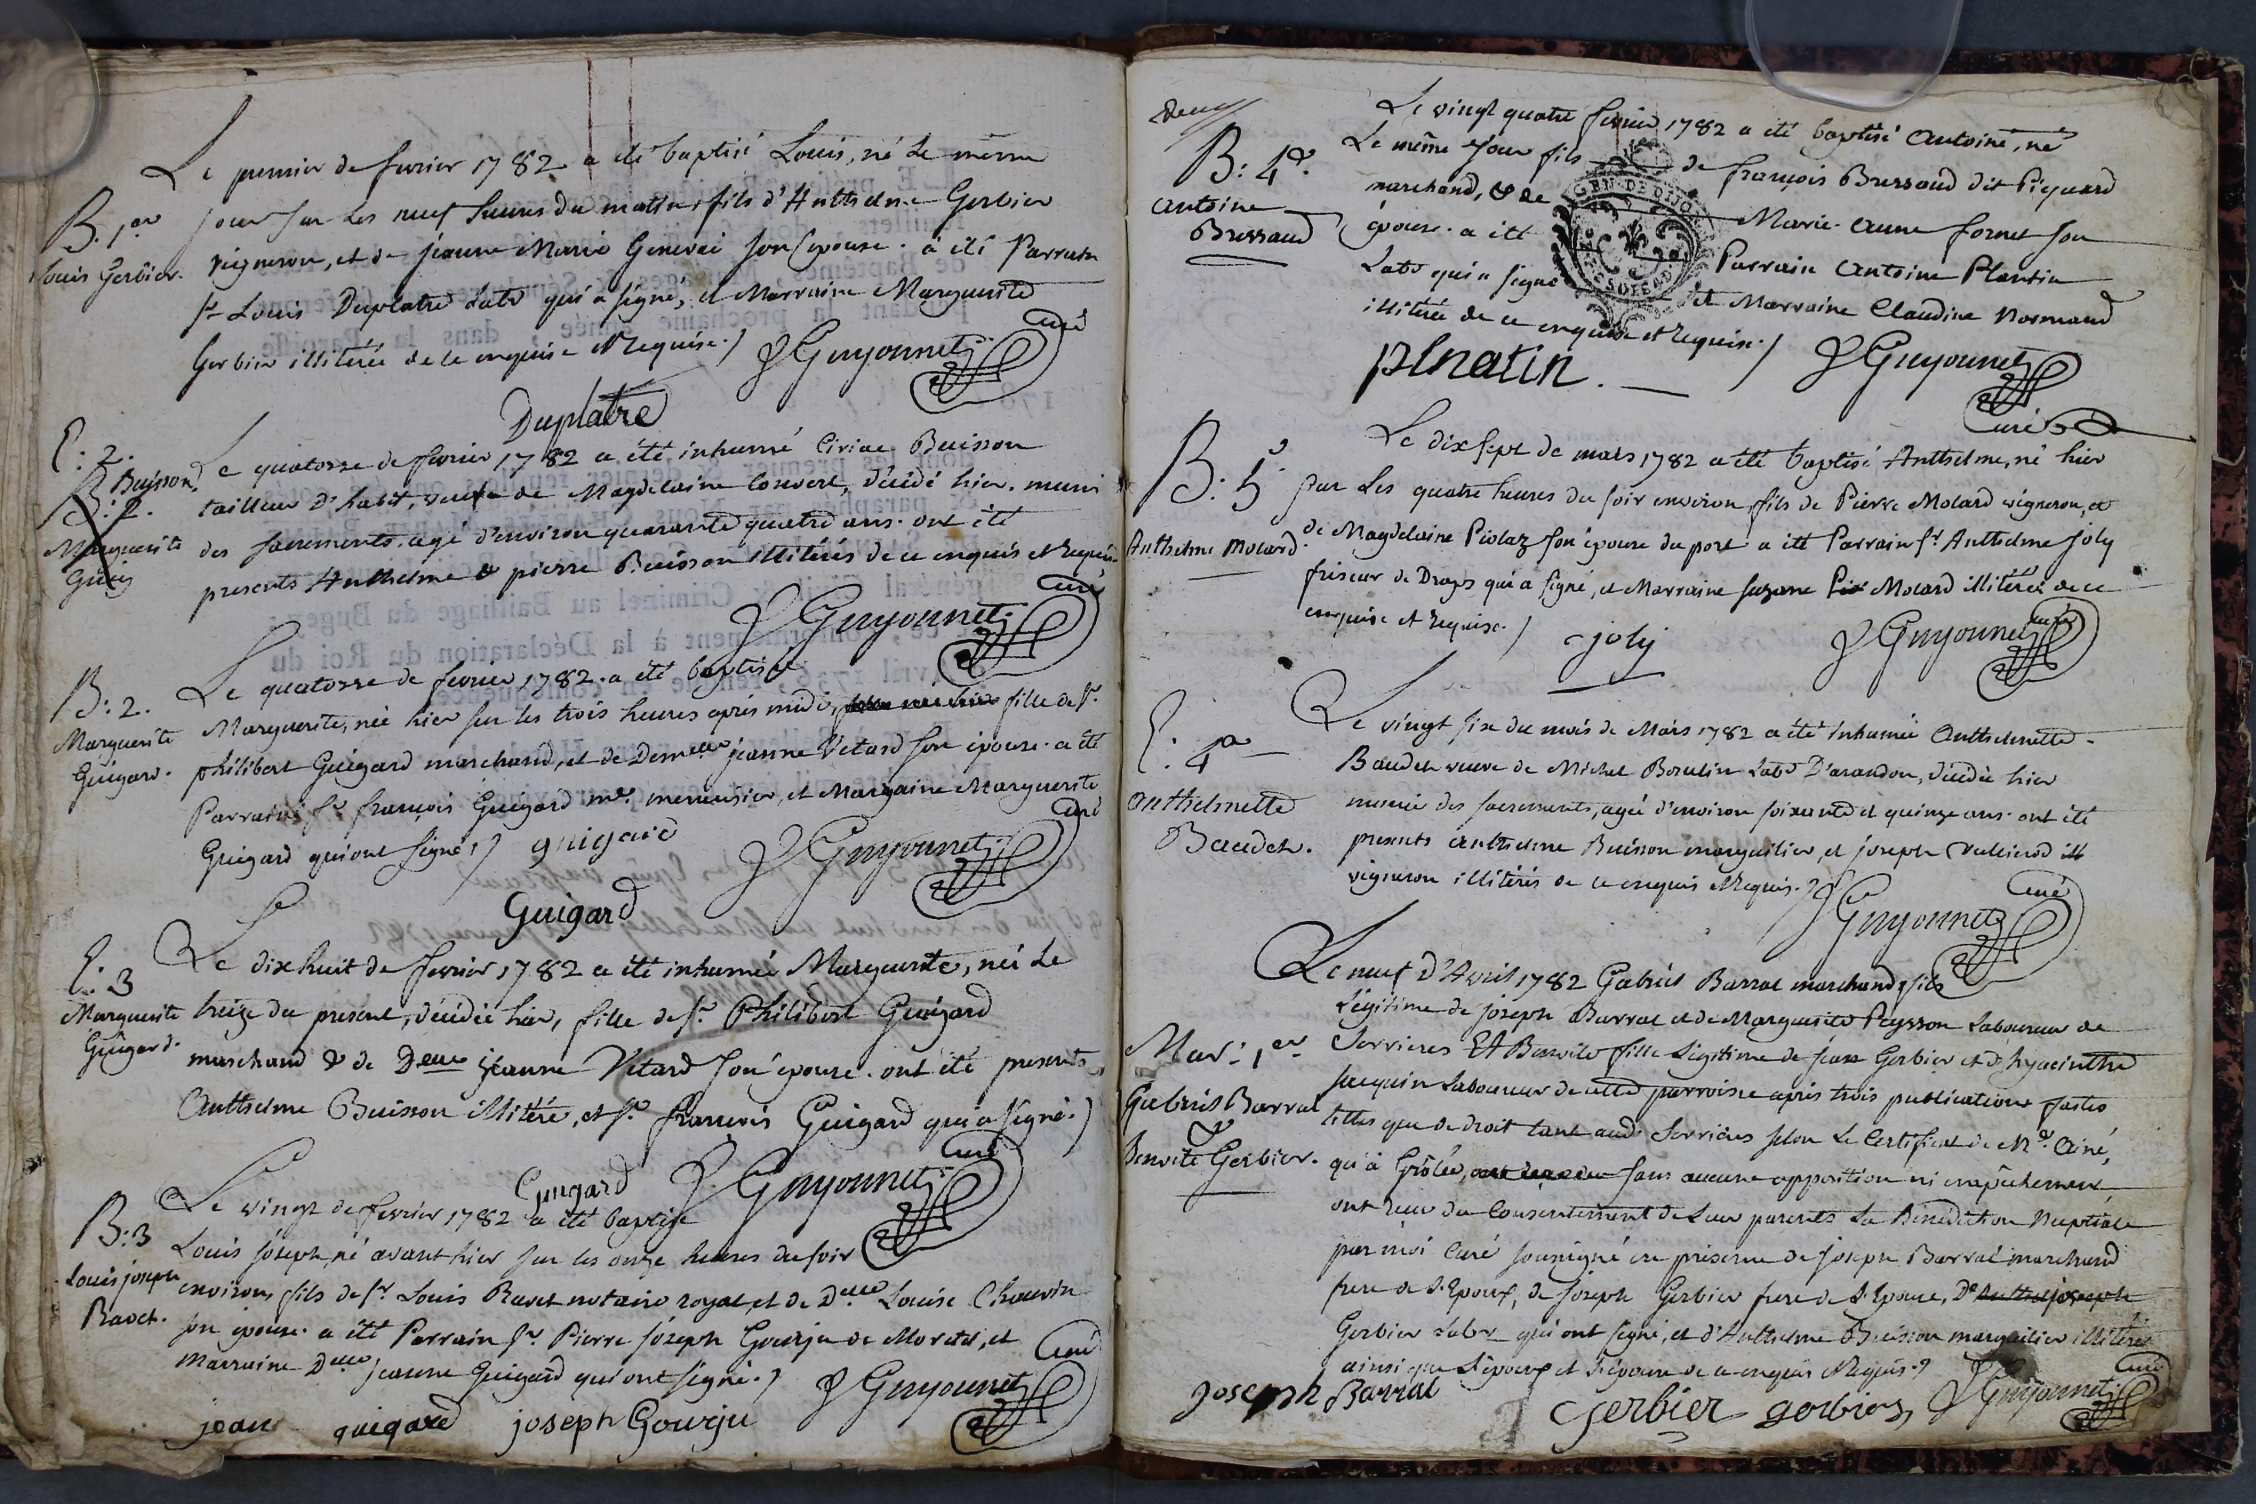 Le premier de fevrier 1782 a été baptisé Louis, né le même
B. 1er
Louis Gerbier.
jour sur les neuf heures du matin, fils d'Anthelme Gerbier
vigneron, et de jeanne Marie Genevei son épouse. a été Parrain
Sr Louis Duplatre Labr qui a signé, et Marraine Marguerite
Gerbier illitérée de ce enquise et Requise./ Guyonnet curé
Duplatre
E: 2.
Buisson
Le quatorze de fevrier 1782 a été inhumé Buisson
tailleur d'habit, de Magdelaine Convert, décédé hier, muni
B: 2.
Marguerite
des sacrements, agé d'environ quarante quatre ans. ont été
presents Anthelme & pierre Buisson illitérés de ce enquis et Requis.
Guyonnet curé
B: 2.
Marguerite
Guigard.
Le quatorze de fevrier 1782. a été baptisée
Marguerite, née hier sur les trois heures après midi, fille de Sr
philibert Guigard marchand, et de Demelle jeanne Vetard son épouse. a été
Parrain Sr françois Guigard me. menuisier, et Marraine Marguerite
Guigard qui ont signé./ guigard Guyonnet curé
Guigard
E: 3
Marguerite
Guigard.
Le dix huit de fevrier 1782 a été inhumée Marguerite, née le
treize du present, décédée hier, fille de Sr Philibert Guigard
marchand & de Delle jeanne Vetard son épouse. ont été presents
Anthelme Buisson illitéré, et Sr françois Guigard qui a signé./
Guigard Guyonnet curé
B: 3
Louis joseph
Ravet.
Le vingt de fevrier 1782 a été baptisé
Louis joseph, né avant hier sur les onze heures du soir
environ, fils de Sr Louis Ravet notaire royal et de Delle Louise Chauvin
son épouse. a été Parrain Sr Pierre joseph Gourju de Morets, et
Marraine Delle jeanne Guigard qui ont signé./ Guyonnet curé
jean guigard joseph Gourju
deux
B: 4e.
Antoine
Bressaud
Le vingt quatre fevrier 1782 a été baptisé Antoine, né
Le même jour fils de françois Bressaud dit Piquard
marchand, & de Marie-Anne fornet son
épouse. a été Parrain Antoine Plantin
Labr qui a signé et Marraine Claudine Normand
illitérée de ce enquise et Requise./
GEN. DE DIJON
plnatin. Guyonnet curé
B: 5e
Anthelme Molard.
Le dix sept de mars 1782 a été baptisé Anthelme, né hier
sur les quatre heures du soir environ, fils de Pierre Molard vigneron, et
de Magdelaine Piolaz son épouse du port a été Parrain Sr Anthelme Joly
friseur de Draps qui a signé, et Marraine suzanne Molard illitérée de ce
enquise et requise./ joly Guyonnet curé
E: 4e
Anthelmette
Baudet.
Le vingt six du mois de Mars 1782 a été inhumée Anthelmette
Baudet veuve de Michel Labr D'arandon, décédée hier
munie des sacrements, agée d'environ soixante et quinze ans. ont été
presents anthelme Buisson marguilier, et joseph
vigneron illitérés de ce enquis et Requis./ Guyonnet curé
Mar: 1er
Gabriel Barral
&
Benoite Gerbier.
Le neuf D'Avril 1782 Gabriel Barral marchand, fils
Légitime de joseph Barral et de Marguerite Peysson Laboureur de
Serrieres Et Benoite fille Légitime de jean Gerbier et d'hyacinthe
jacquin Laboureur de cette parroisse après trois publications faites
telles que de droit Serrieres selon Le Certificat de Mr. Ainé,
qu'à Grôlée, sans aucune opposition ni empêchement
ont reçu du Consentement de Leur parents La Bénédiction Nuptiale
par moi Curé soussigné en présence de joseph Barral marchand
frere de l'Epoux, de joseph Gerbier frere de l'Epouse, De joseph
Gerbier Labr qui ont signé, et d'Anthelme Buisson marguilier illitéré
ainsi que L'époux et l'épouse de ce enquis et Requis./
joseph Barral Gerbier gerbier Guyonnet curé